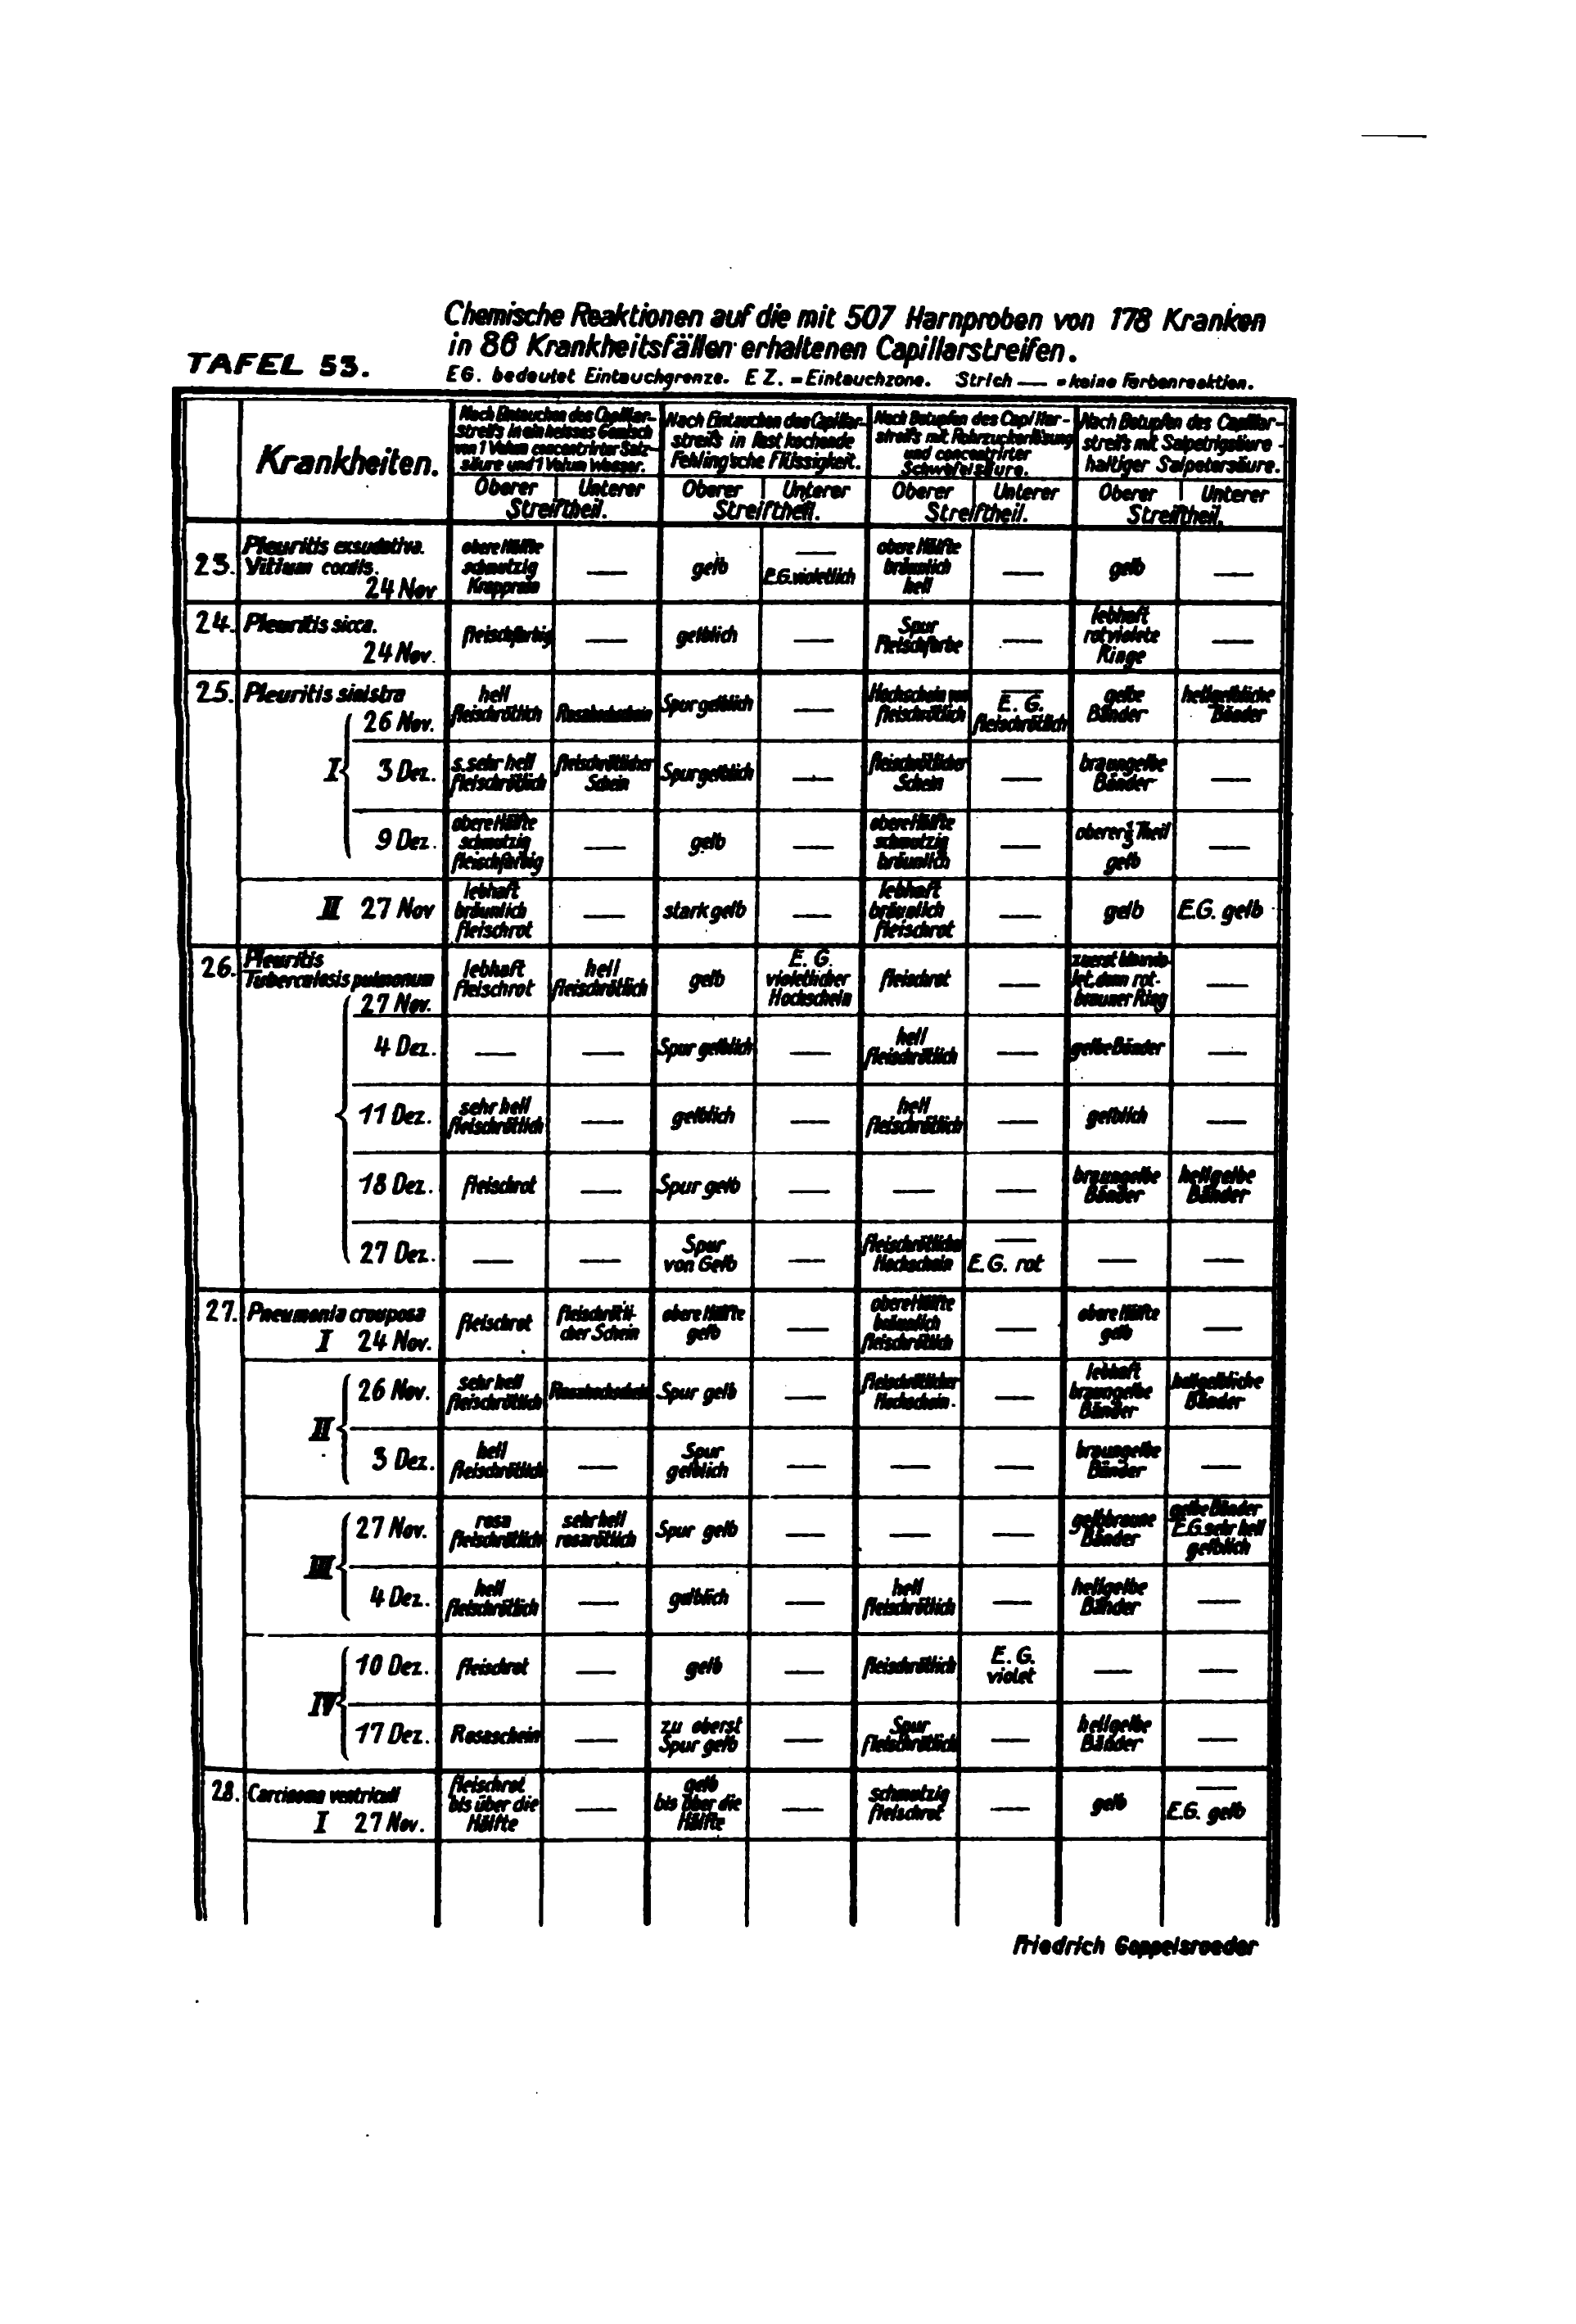 Chemische Reaktionen auf die mit 507 Harnproben von 178 Kranken
in 86 Krankheitsfällen erhaltenen Capillarstreifen.
TAFEL 53.
EG. bedeutet Eintauchgrenze. E Z. = Eintauchzone. Strich — = keine Farbenreaktion.
Krankheiten.
Nach Eintauchen des Capillar-
streifs in ein heisses Gemisch
von 1 Volum concentrirter Salz-
säure und 1 Volum Wasser.
Nach Eintauchen des Capillar-
streifs in fast kochende
Fehling'sche Flüssigkeit.
Nach Betupfen des Capillar-
streifs mit Rohrzuckerlösung
und concentrirter
Schwefelsäure.
Nach Betupfen des Capillar-
streifs mit Salpetrigsäure-
haltiger Salpetersäure.
Oberer Unterer Oberer Unterer Oberer Unterer Oberer Unterer
Streiftheil. Streiftheil. Streiftheil. Streiftheil.
23. Pleuritis exsudativa.
Vitium cordis.
24 Nov
obere Hälfte
schmutzig
—
gelb
—
E.G. violettlich
obere Hälfte
bräunlich
hell
—
gelb
—
24. Pleuritis sicca.
24 Nov.
fleischfarbig
—
gelblich
—
Spur
Fleischfarbe
—
lebhaft
rotviolete
Ringe
—
25. Pleuritis sinistra
I
26 Nov.
hell
fleischrötlich
Rosahochschein
Spur gelblich
—
Hochschein von
fleischrötlich
—
E. G.
fleischrötlich
gelbe
Bänder
hellgelbliche
Bänder
3 Dez.
s. sehr hell
fleischrötlich
fleischrötlicher
Schein
Spur gelblich
—
fleischrötlicher
Schein
—
braungelbe
Bänder
—
9 Dez.
obere Hälfte
schmutzig
fleischfarbig
—
gelb
—
obere Hälfte
schmutzig
bräunlich
—
oberer 1/3 Theil
gelb
—
II 27 Nov
lebhaft
bräunlich
fleischrot
—
stark gelb
—
lebhaft
bräunlich
fleischrot
—
gelb
E.G. gelb
26. Pleuritis
Tuberculosis pulmonum
27 Nov.
lebhaft
fleischrot
hell
fleischrötlich
gelb
E. G.
violettlicher
Hochschein
fleischrot
—
zuerst
dann rot-
brauner Ring
—
4 Dez.
—
—
Spur gelblich
—
hell
fleischrötlich
—
gelbe Bänder
—
11 Dez.
sehr hell
fleischrötlich
—
gelblich
—
hell
fleischrötlich
—
gelblich
—
18 Dez.
fleischrot
—
Spur gelb
—
—
—
braungelbe
Bänder
hellgelbe
Bänder
27 Dez.
—
—
Spur
von Gelb
—
fleischrötlicher
Hochschein
—
E.G. rot
—
—
27. Pneumonia crouposa
I 24 Nov.
fleischrot
fleischrötli-
cher Schein
obere Hälfte
gelb
—
obere Hälfte
bräunlich
fleischrötlich
—
obere Hälfte
gelb
—
II
26 Nov.
sehr hell
fleischrötlich
Rosahochschein
Spur gelb
—
fleischrötlicher
Hochschein.
—
lebhaft
braungelbe
Bänder
hellgelbliche
Bänder
3 Dez.
hell
fleischrötlich
—
Spur
gelblich
—
—
—
braungelbe
Bänder
—
III
27 Nov.
rosa
fleischrötlich
sehr hell
rosarötlich
Spur gelb
—
—
—
gelbbraune
Bänder
gelbe Bänder
E.G. sehr hell
gelblich
4 Dez.
hell
fleischrötlich
—
gelblich
—
hell
fleischrötlich
—
hellgelbe
Bänder
—
IV
10 Dez.
fleischrot
—
gelb
—
fleischrötlich
E. G.
violet
—
—
17 Dez.
Rosaschein
—
zu oberst
Spur gelb
—
Spur
fleischrötlich
—
hellgelbe
Bänder
—
28. Carcinoma ventriculi
I 27 Nov.
fleischrot
bis über die
Hälfte
—
gelb
bis über die
Hälfte
—
schmutzig
fleischrot
—
gelb
—
E.G. gelb
Friedrich Goppelsroeder